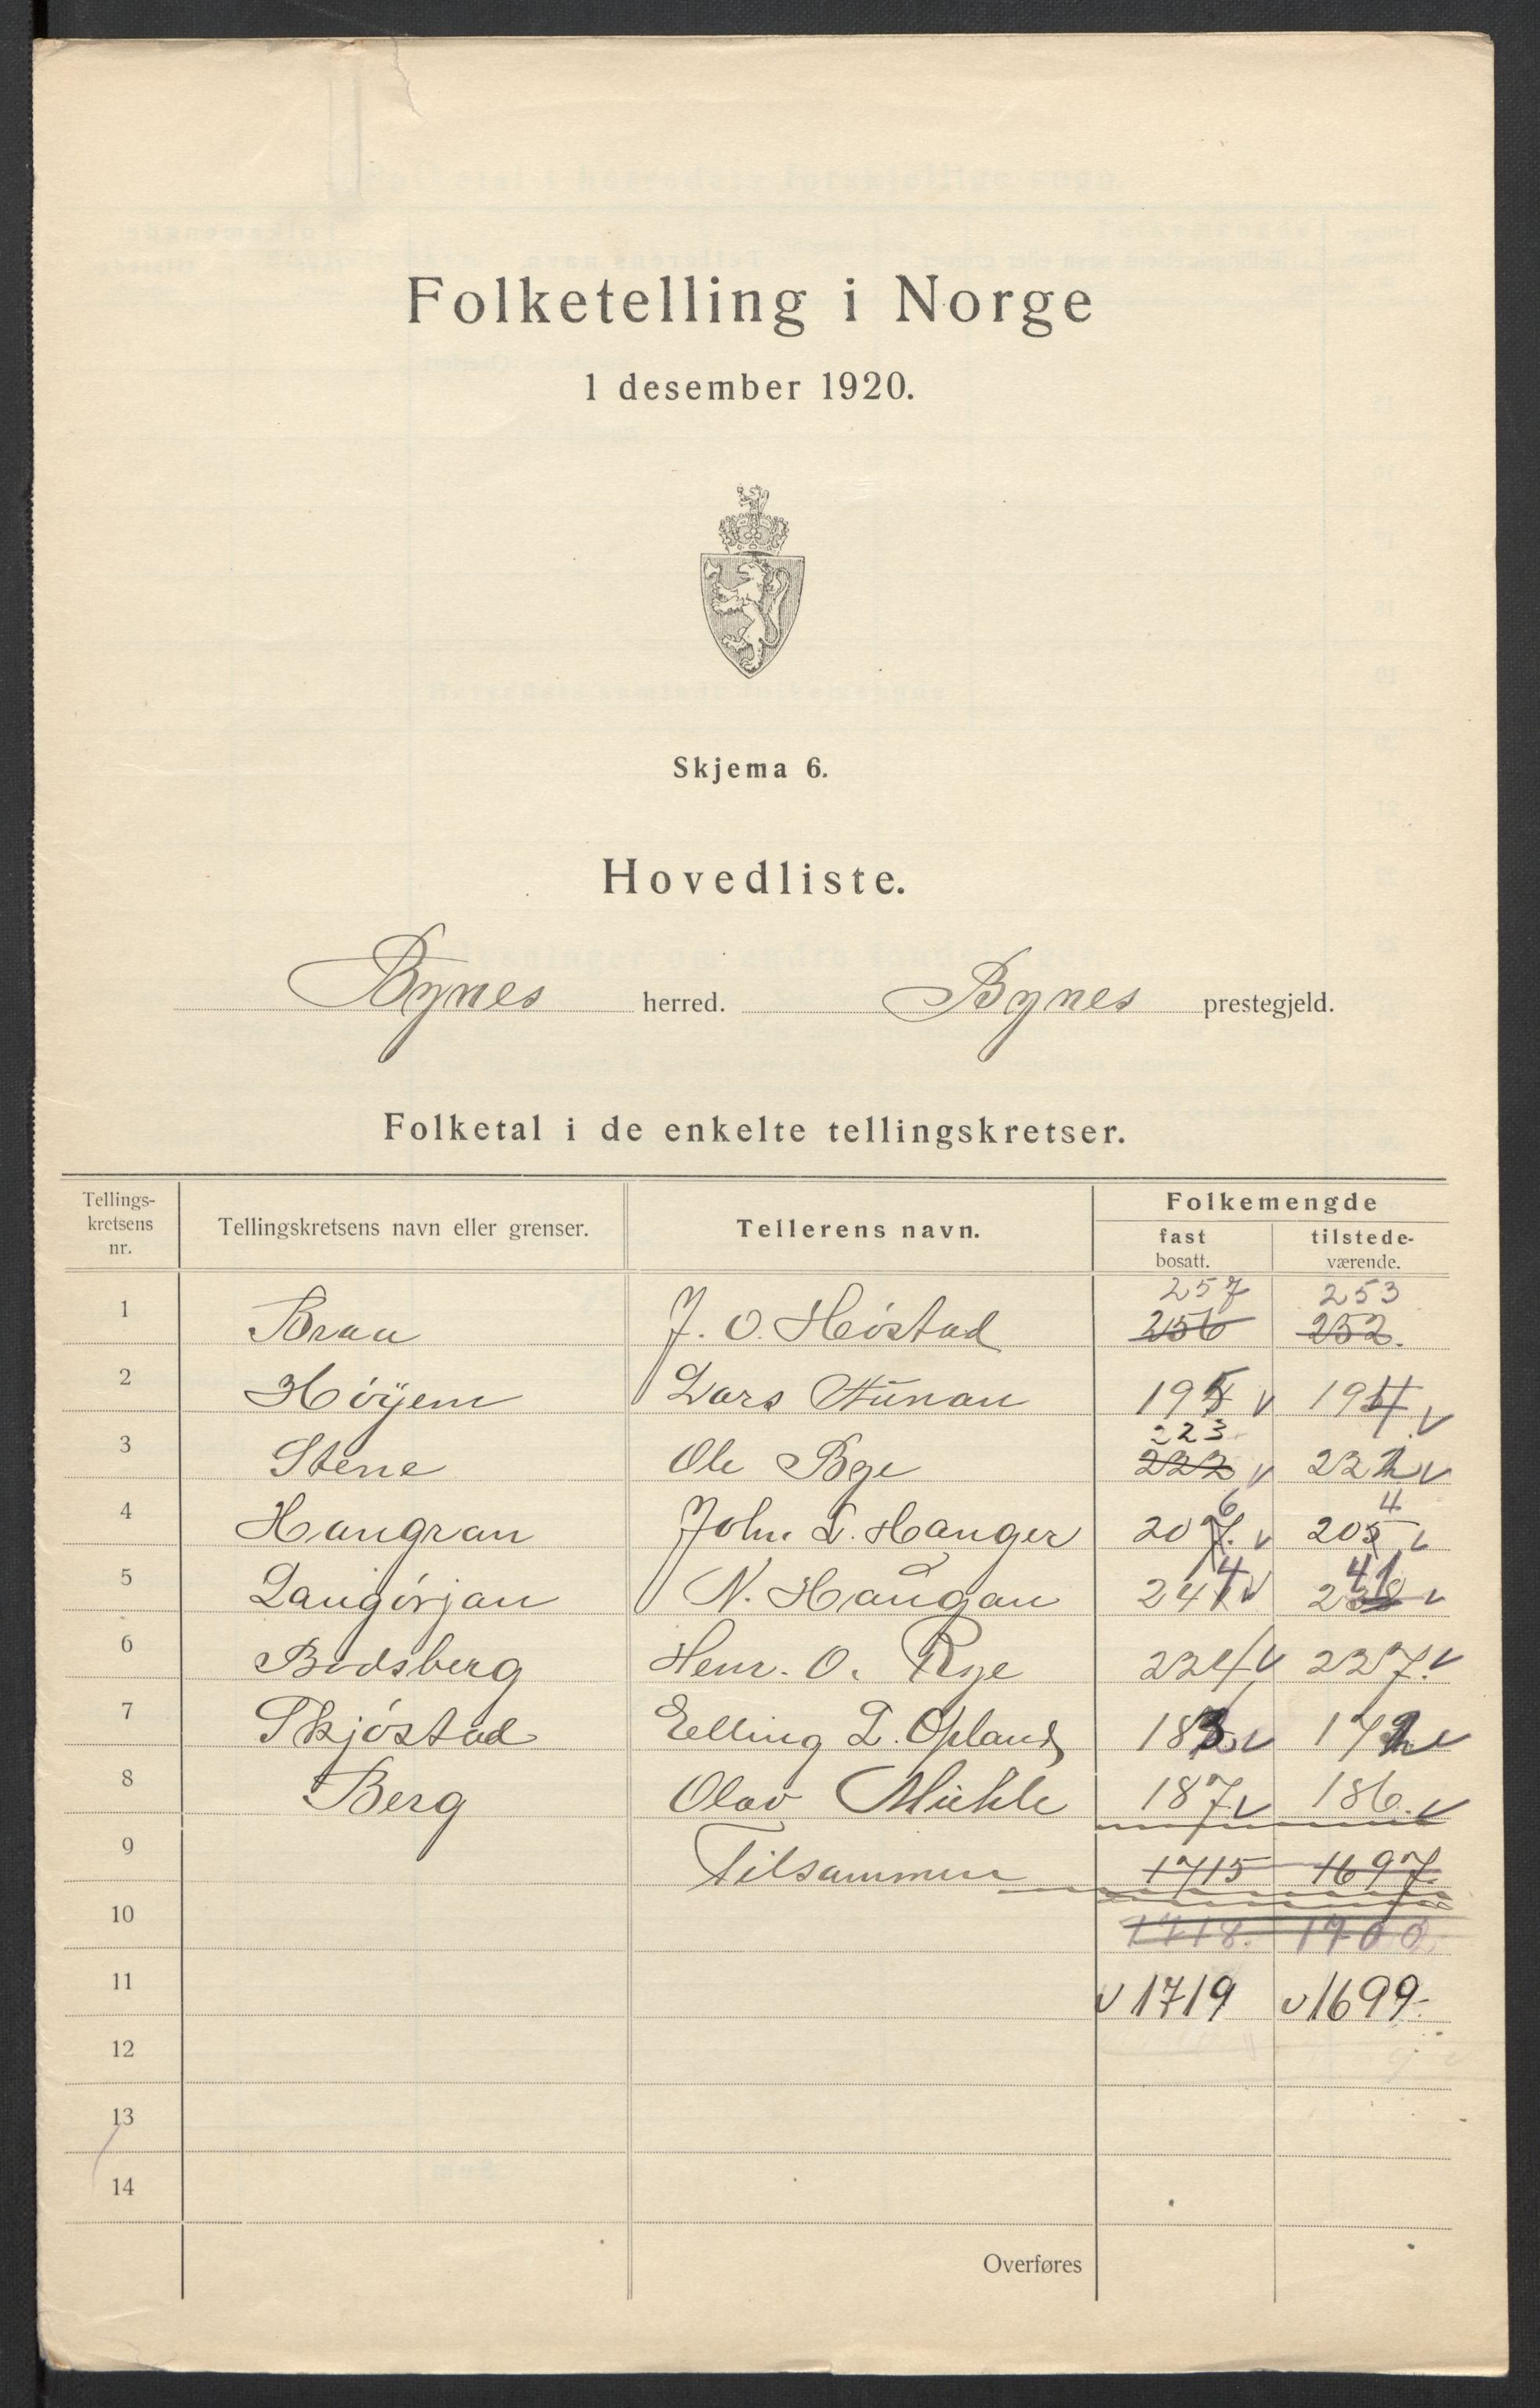 Folketelling i Norge
1 desember 1920.
Skjema 6.
Hovedliste.
Bynes herred. Bynes prestegjeld.
Folketal i de enkelte tellingskretser.
Tellings-kretsens nr. Tellingskretsens navn eller grenser. Tellerens navn. Folkemengde
fast bosatt. tilstede-værende.
257 253
1 Braa J. O. Heistad 256 252.
2 Höÿem Lars Hunan 195 v 194 v
223
3 Stene Ole Bye 222 v 222 v
6 4
4 Hangran John L. Hanger 207. v 205 v
4 41
5 Langörjan N. Haugan 241 v 238 v
6 Bosberg Henr. O. Rye 224 v 227. v
7 Skjöstad Elling L. Opland 183 v 172 v
8 Berg Olav Mühle 187. v 186. v
9 Tilsammen 1715 1697.
10 1718. 1700
11 v 1719 v 1699-
12
13
14
Overføres